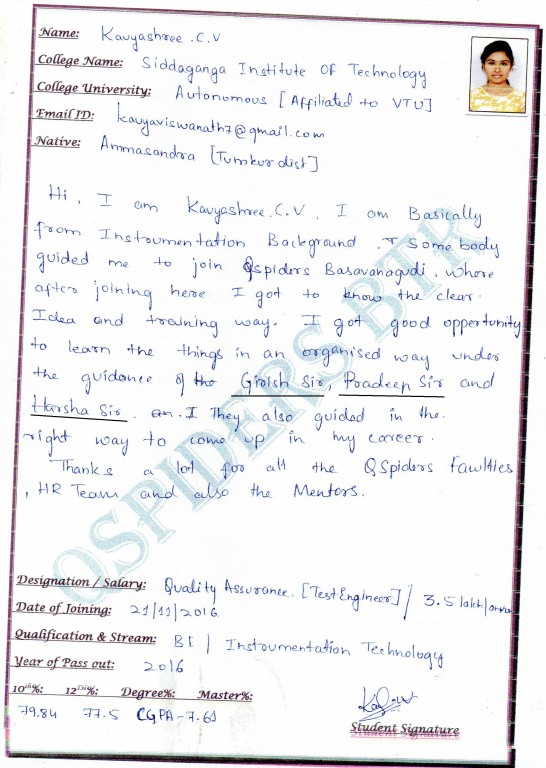 Name: Kavyashree .C.V
College Name: Siddaganga Institute Of Technology
College University: Autonomous [Affiliated to VTU]
Email ID: kavyaviswanath7@gmail.com
Native: Ammasandra [Tumkur dist]
Hi, I am Kavyashree.C.V, I am Basically
from Instrumentation Background. Some body
guided me to join Qspiders Basavanagudi, where
after joining here I got to know the clear
Idea and training way. I got good opportunity
to learn the things in an organised way under
the guidance of the Girish Sir, Pradeep Sir and
Harsha Sir. an. I They also guided in the
right way to come up in my career.
Thanks a lot for all the QSpiders Faculties
, HR Team and also the Mentors.
QSPIDERS BTR
Designation / Salary: Quality Assurance. [Test Engineer] / 3.5 lakh/annum
Date of Joining: 21/11/2016
Qualification & Stream: BE | Instrumentation Technology
Year of Pass out: 2016
10th%: 12TH%: Degree%: Master%:
79.84 77.5 CGPA-7.61
Student Signature